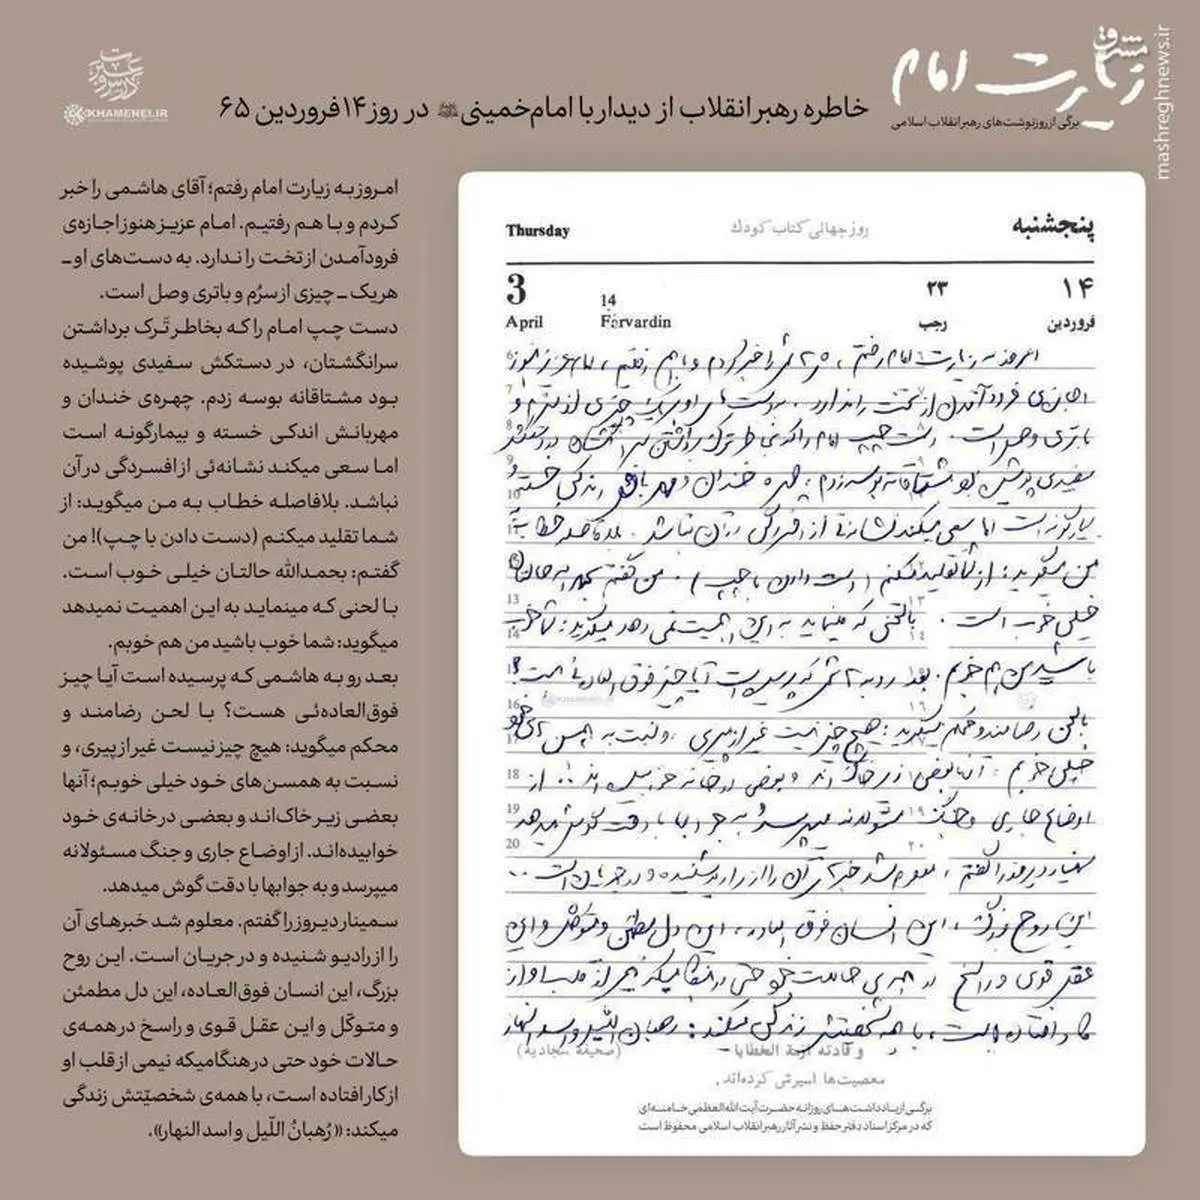 زیارت امام
مشرق
برگی از روزنوشت‌های رهبر انقلاب اسلامی
mashreghnews.ir
خاطره رهبر انقلاب از دیدار با امام خمینی در روز ۱۴ فروردین ۶۵
درس و عبرت
KHAMENEI.IR
امروز به زیارت امام رفتم؛ آقای هاشمی را خبر
کردم و با هم رفتیم. امام عزیز هنوز اجازه‌ی
فرودآمدن از تخت را ندارد. به دست‌های او ـ
هر یک ـ چیزی از سرُم و باتری وصل است.
دست چپ امام را که بخاطر تَرک برداشتن
سرانگشتان، در دستکش سفیدی پوشیده
بود مشتاقانه بوسه زدم. چهره‌ی خندان و
مهربانش اندکی خسته و بیمارگونه است
اما سعی میکند نشانه‌ئی از افسردگی در آن
نباشد. بلافاصله خطاب به من میگوید: از
شما تقلید میکنم (دست دادن با چپ)! من
گفتم: بحمدالله حالتان خیلی خوب است.
با لحنی که مینماید به این اهمیت نمیدهد
میگوید: شما خوب باشید من هم خوبم.
بعد رو به هاشمی که پرسیده است آیا چیز
فوق‌العاده‌ئی هست؟ با لحن رضامند و
محکم میگوید: هیچ چیز نیست غیر از پیری، و
نسبت به همسن‌های خود خیلی خوبم؛ آنها
بعضی زیر خاک‌اند و بعضی در خانه‌ی خود
خوابیده‌اند. از اوضاع جاری و جنگ مسئولانه
میپرسد و به جوابها با دقت گوش میدهد.
سمینار دیروز را گفتم. معلوم شد خبرهای آن
را از رادیو شنیده و در جریان است. این روح
بزرگ، این انسان فوق‌العاده، این دل مطمئن
و متوکّل و این عقل قوی و راسخ در همه‌ی
حالات خود حتی در هنگامیکه نیمی از قلب او
از کار افتاده است، با همه‌ی شخصیّتش زندگی
میکند: «رُهبانُ اللّیل و اسد النهار».
پنجشنبه
روز جهانی کتاب کودک
Thursday
۱۴
۲۳
14
3
فروردین
رجب
Farvardin
April
امروز به زیارت امام رفتم، هاشمی را خبر کردم و با هم رفتیم، امام عزیز هنوز
اجازه‌ی فرود آمدن از تخت را ندارد، به دست‌های او هر یک چیزی از سرم و
باتری وصل است. دست چپ امام را که بخاطر ترک برداشتن سرانگشتان در دستکش
سفیدی پوشیده بود مشتاقانه بوسه زدم، چهره خندان و مهربانش اندکی خسته و
بیمارگونه است اما سعی میکند نشانه‌ئی از افسردگی در آن نباشد. بلافاصله خطاب به
من میگوید: از شما تقلید میکنم (دست دادن با چپ). من گفتم بحمدالله حالتان
خیلی خوب است. با لحنی که مینماید به این اهمیت نمی‌دهد میگوید: شما خوب
باشید من هم خوبم. بعد رو به هاشمی که پرسیده است آیا چیز فوق العاده‌ئی است؟
با لحن رضامند و محکم میگوید: هیچ چیز نیست غیر از پیری، و نسبت به همسن های خود
خیلی خوبم: آنها بعضی زیر خاک‌اند و بعضی در خانه خوابیده‌اند. از
اوضاع جاری و جنگ مسئولانه میپرسد و به جوابها با دقت گوش میدهد
سمینار دیروز را گفتم، معلوم شد خبرهای آن را از رادیو شنیده و در جریان است..
این روح بزرگ، این انسان فوق العاده، این دل مطمئن و متوکل و این
عقل قوی و راسخ در همه‌ی حالات خود حتی در هنگامیکه نیمی از قلب او از
کار افتاده است، با همه شخصیتش زندگی میکند: رهبان اللیل و اسد النهار
و قادته ازمة الخطایا – (صحیفة سجادیة)
معصیت‌ها اسیرش کرده‌اند.
برگی از یادداشت‌های روزانه حضرت آیت‌الله‌العظمی خامنه‌ای
که در مرکز اسناد دفتر حفظ و نشر آثار رهبر انقلاب اسلامی محفوظ است